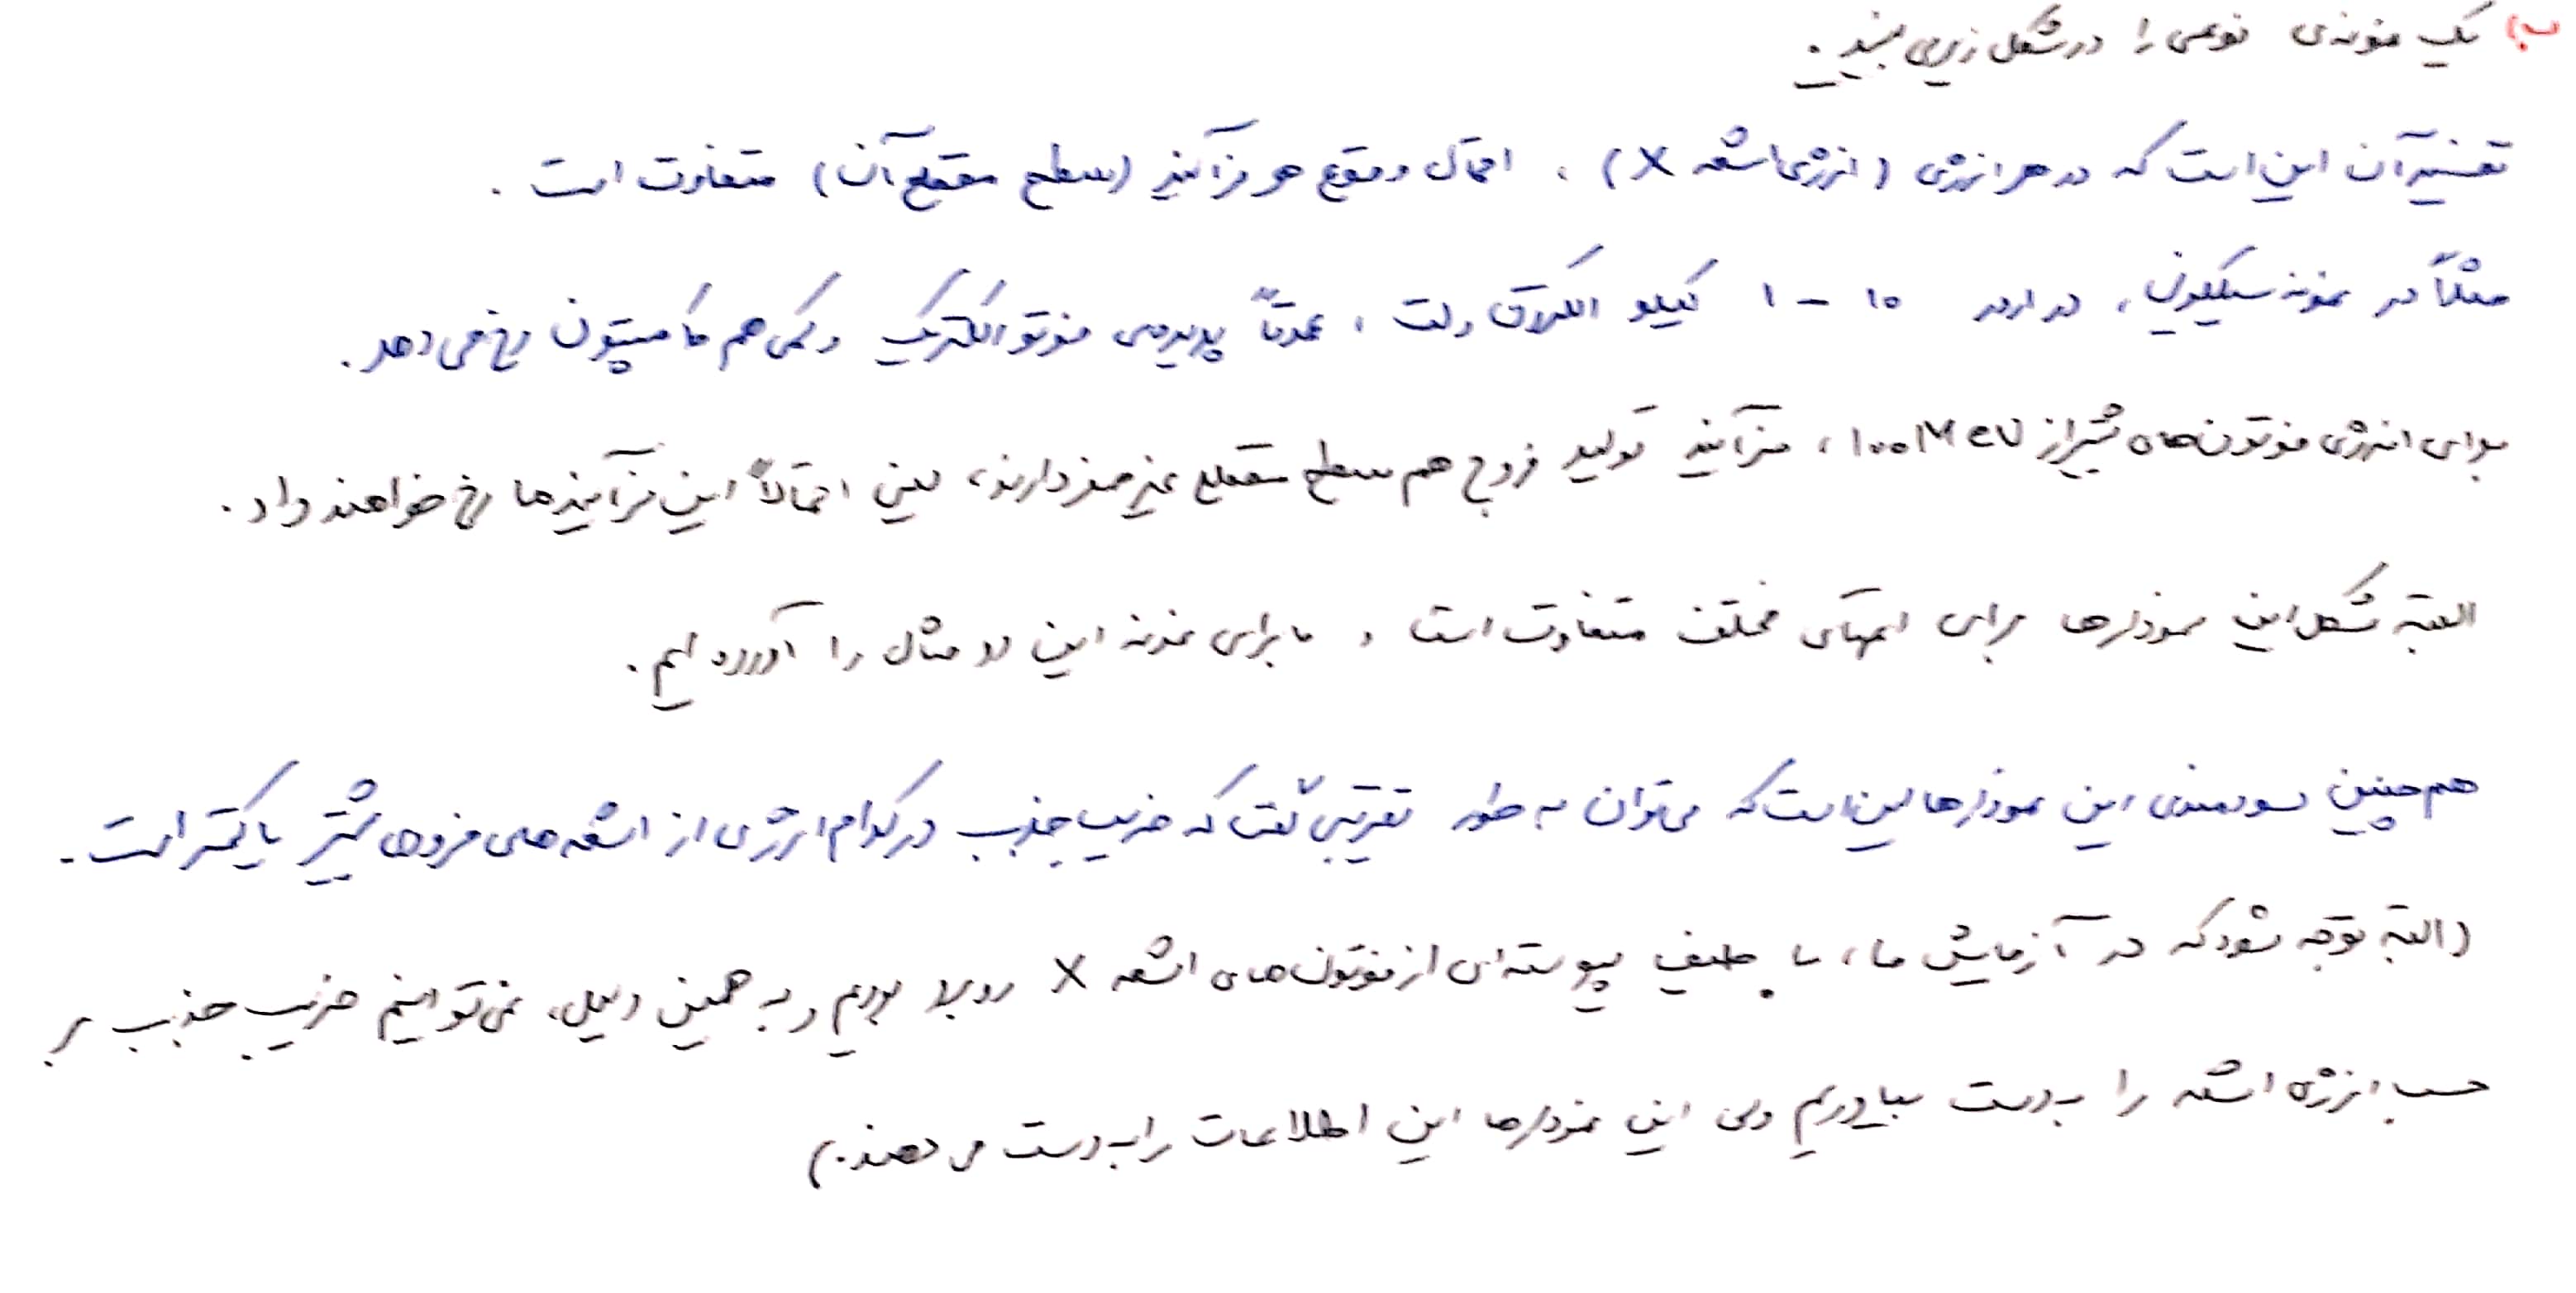 ب) یک نمونه‌ی نوعی را در شکل زیر می بینید.
تفسیر آن این است که در هر انرژی (انرژی اشعه X)، احتمال وقوع هر فرآیند (سطح مقطع آن) متفاوت است.
مثلاً در نمونه سیلیکونی، در اردر ۱۰ - ۱ کیلو الکترون ولت، عمدتاً پدیده‌ی فوتوالکتریک و کمی هم کامپتون رخ می دهد.
برای انرژی فوتون‌های بیش از ۱۰۰ MeV، فرآیند تولید زوج هم سطح مقطع غیر صفر دارند، یعنی احتمالاً این فرآیندها رخ خواهند داد.
البته شکل این نمودارها برای اتمهای مختلف متفاوت است و ما برای نمونه این دو مثال را آورده ایم.
هم چنین سودمندی این نمودارها این است که می توان به طور تقریبی گفت که ضریب جذب در کدام انرژی از اشعه های فرودی بیشتر یا کمتر است.
(البته توجه شود که در آزمایش ما، با طیف پیوسته‌ای از فوتون‌های اشعه X روبرو بودیم و به همین دلیل، نمی توانیم ضریب جذب بر
حسب انرژی اشعه را به دست بیاوریم ولی این نمودارها این اطلاعات را به دست می دهند.)